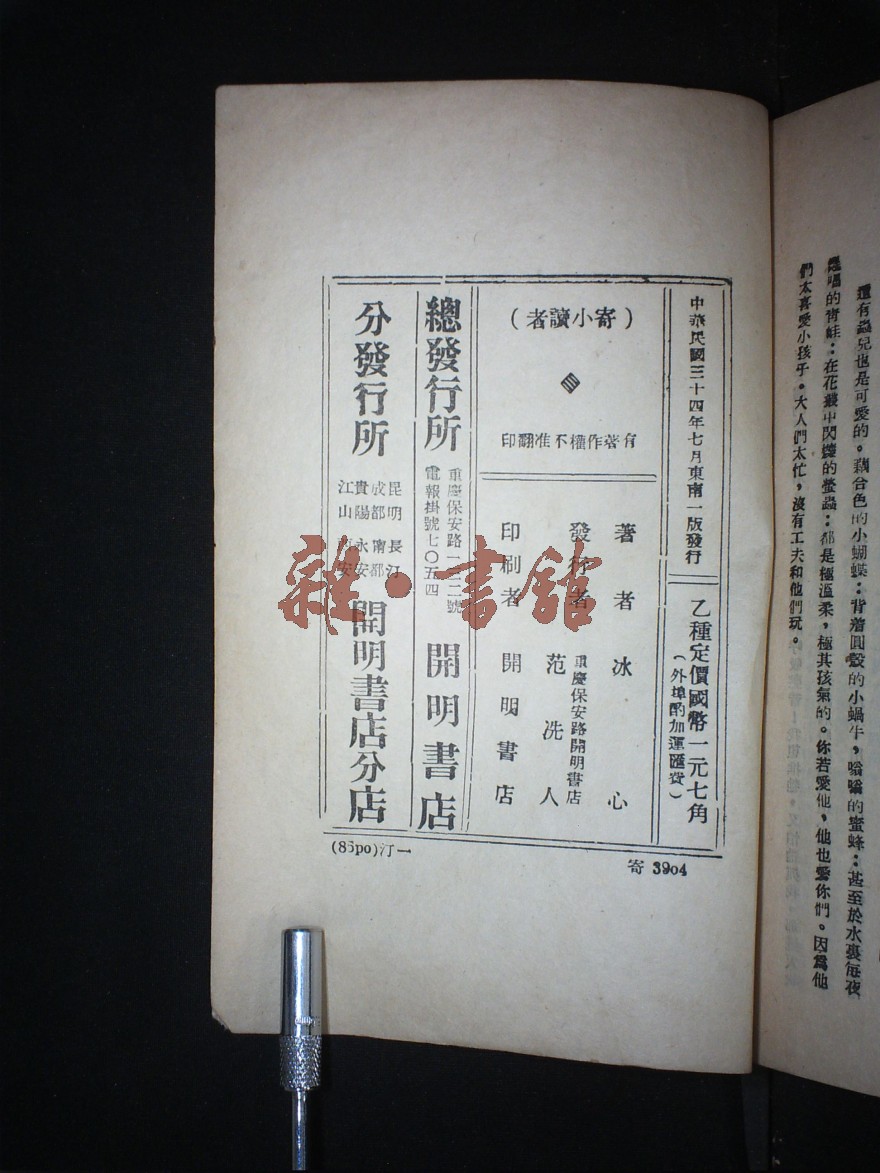 還有蟲兒也是可愛的。藕合色的小蝴蝶:背着圓殼的小蝸牛,嗡嗡的蜜蜂:甚至於水裏每夜
唱的青蛙:在花叢中閃爍的螢蟲:都是極溫柔,極其孩氣的。你若愛他,他也愛你們。因爲他
們太喜愛小孩子。大人們太忙,沒有工夫和他們玩。
中華民國三十四年七月東南一版發行
乙種定價國幣一元七角
(外埠酌加運匯費)
(寄小讀者)
有著作權不准翻印
著者 冰心
發行者 范洗人
重慶保安路開明書店
印刷者 開明書店
總發行所
重慶保安路一三二號
電報掛號七〇五四
開明書店
分發行所
昆明 長汀
成都 南都
貴陽 永安
江山 安
開明書店分店
(86po)汀一
寄 3904
雜·書館